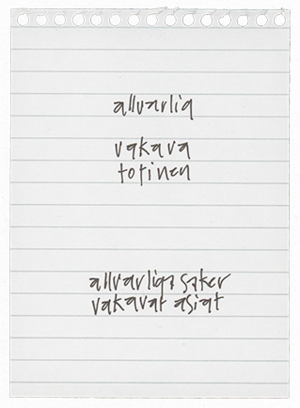 allvarlig
vakava
totinen
allvarliga saker
vakavat asiat